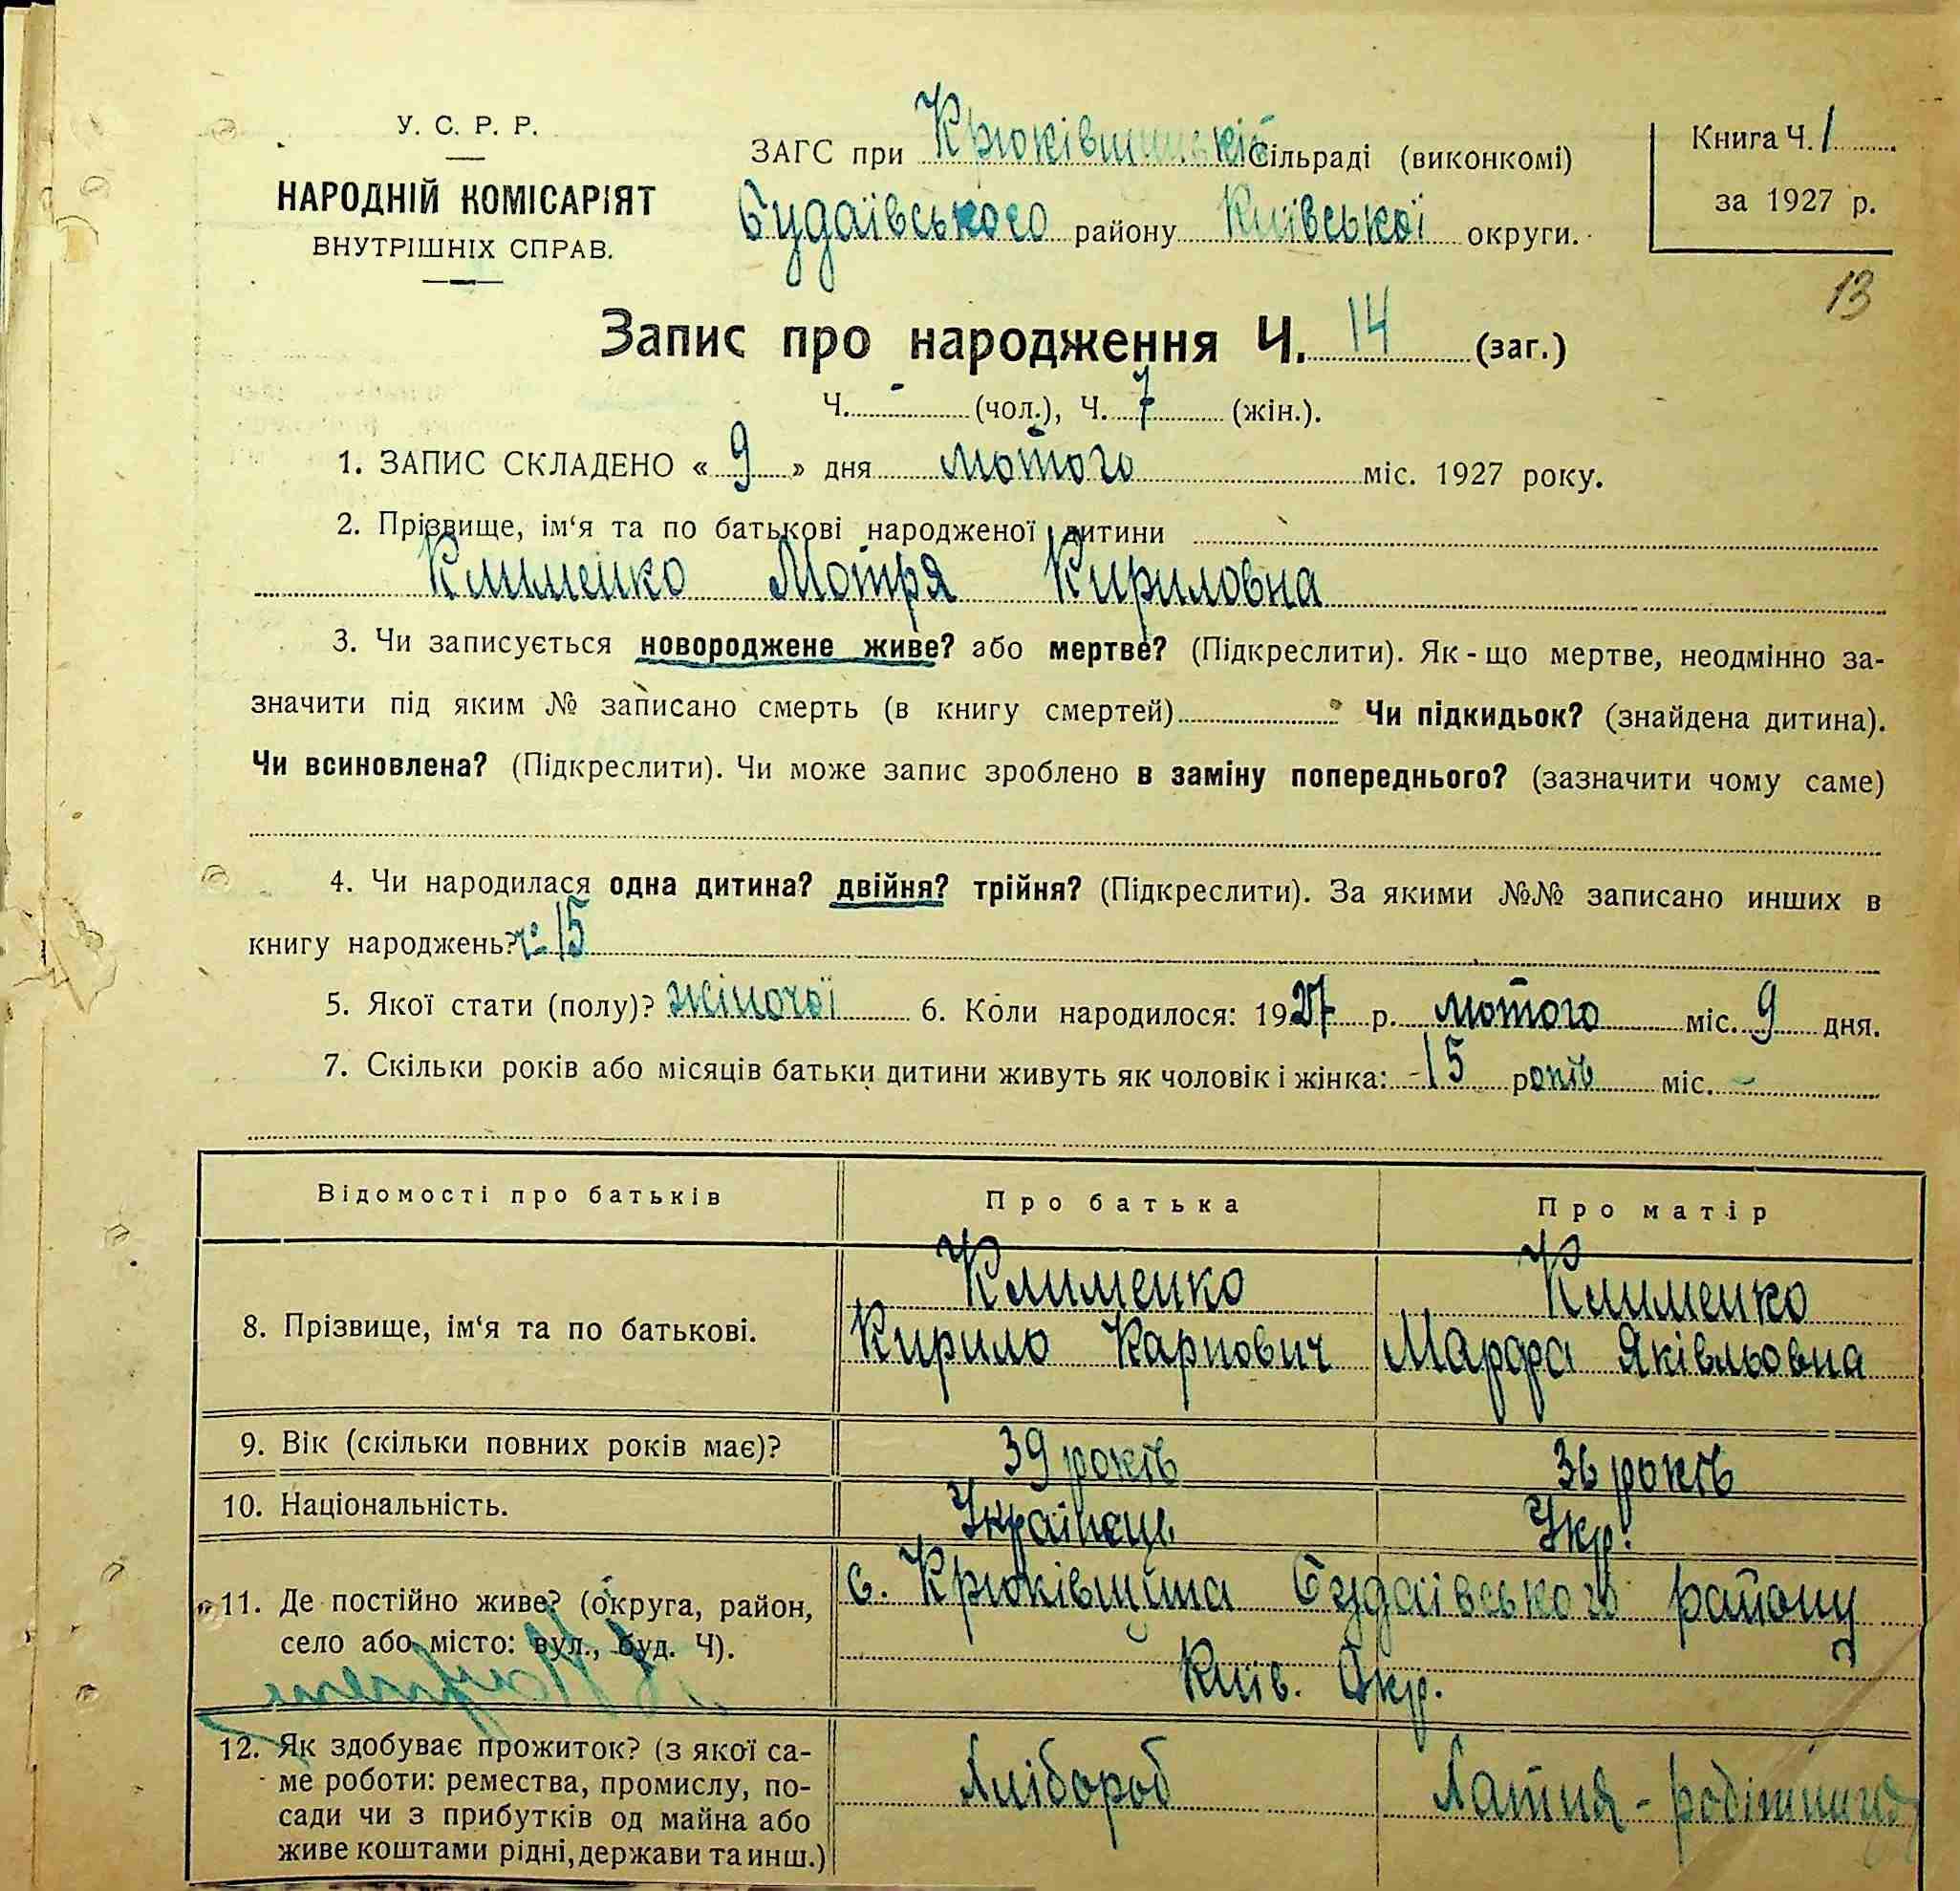 У. С. Р. Р.
НАРОДНІЙ КОМІСАРІЯТ
ВНУТРІШНІХ СПРАВ.
ЗАГС при Крюківщинській сільраді (виконкомі)
Будаївського району Київської округи.
Книга Ч. 1
за 1927 р.
13
Запис про народження Ч. 14 (заг.)
Ч. - (чол.), Ч. 7 (жін.).
1. ЗАПИС СКЛАДЕНО « 9 » дня лютого міс. 1927 року.
2. Прізвище, ім‘я та по батькові народженої дитини
Клименко Мотря Кириловна
3. Чи записується новороджене живе? або мертве? (Підкреслити). Як - що мертве, неодмінно за-
значити під яким № записано смерть (в книгу смертей) Чи підкидьок? (знайдена дитина).
Чи всиновлена? (Підкреслити). Чи може запис зроблено в заміну попереднього? (зазначити чому саме)
4. Чи народилася одна дитина? двійня? трійня? (Підкреслити). За якими №№ записано инших в
книгу народжень? 15
5. Якої стати (полу)? жіночої 6. Коли народилося: 1927 р. лютого міс. 9 дня.
7. Скільки років або місяців батьки дитини живуть як чоловік і жінка: - 15 років міс. -
Відомості про батьків Про батька Про матір
Клименко Клименко
8. Прізвище, ім‘я та по батькові. Кирило Карпович Марфа Яківльовна
9. Вік (скільки повних років має)? 39 років 36 років
10. Національність. Українець Укр.
11. Де постійно живе? (округа, район, с. Крюківщина Будаївського району
село або місто: вул., буд. Ч). Київ. Окр.
12. Як здобуває прожиток? (з якої са- Хлібороб Хатня - робітниця
ме роботи: ремества, промислу, по-
сади чи з прибутків од майна або
живе коштами рідні, держави та инш.)